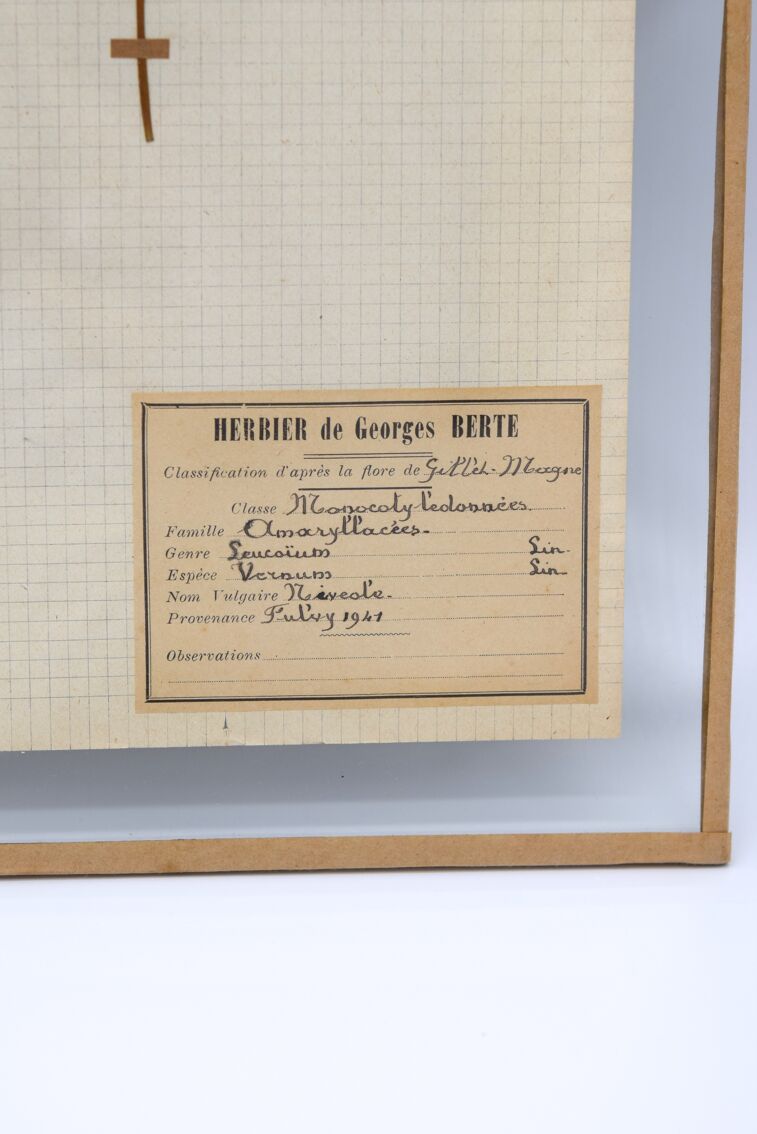 HERBIER de Georges BERTE
Classification d'après la flore de Gillet-Magne
Classe Monocotylédonnées.
Famille Amaryllacées.
Genre Leucoïum Lin.
Espèce Vernum Lin.
Nom Vulgaire Nivéole.
Provenance Fulvy 1941
Observations